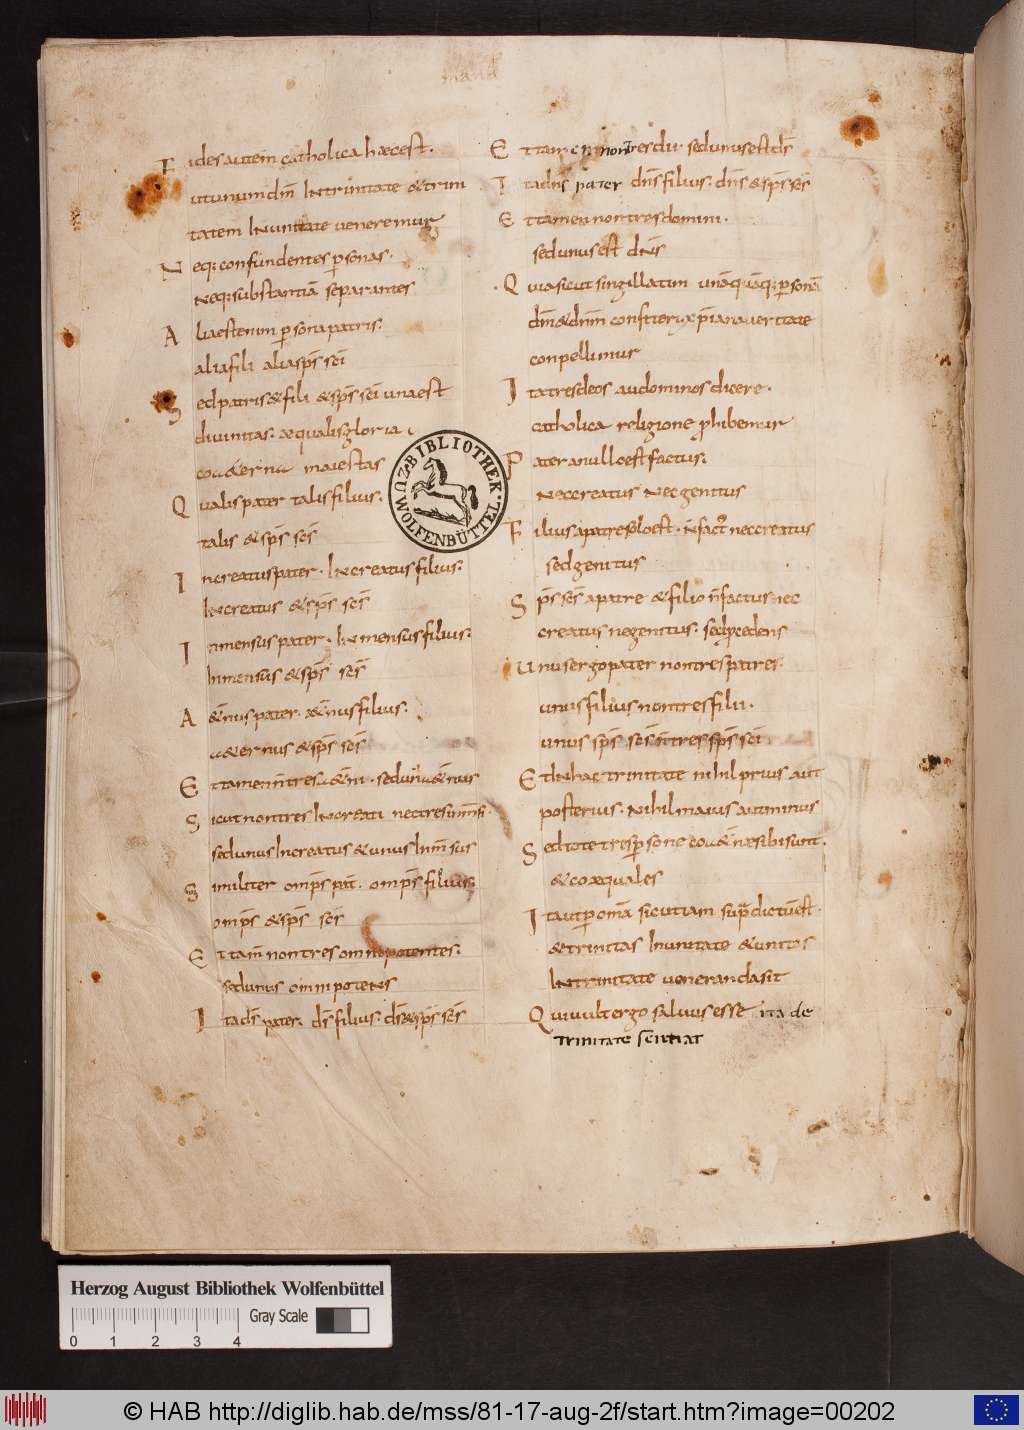 Fides autem catholica hæc est.
ut unum dm̄ In trinitate & trini
tatem In unitate ueneremur
Neq; confundentes personas.
Neq; substantiā separantes
Alia est enim persona patris.
alia fili alia sp̄s sc̄i
Sed patris & fili & sp̄s sc̄i una est
diuinitas. æqualis gloria
maiestas
Qualis pater talis filius.
talis & sp̄s sc̄s
Increatus pater. Increatus filius.
Increatus & sp̄s sc̄s
Inmensus pater. Inmensus filius.
Inmensus & sp̄s sc̄s
A&nus pater. a&nus filius.
& sp̄s sc̄s
Et tamen
Sicut non tres Increati nec tres
sed unus Increatus & unus Inmsus
Similiter omp̄s omp̄s filius.
omp̄s & sp̄s sc̄s
Et tam̄ non tres omnipotentes.
sed unus omnipotens
Ita ds̄ pater. ds̄ filius. ds̄ & sp̄s sc̄s
Et tam̄ non tres dii. sed unus est ds̄
Ita dns̄ pater dns̄ filius. dns̄ & sp̄s sc̄s
Et tamen non tres domini.
sed unus est dNs
Quia sicut singillatim unāquāq; personā
dm̄ & dnm̄ xp̄iana ueritate
conpellimur
Ita tres deos au dominos dicere.
catholica religione prohibemur
Pater a nullo est factus.
Nec creatus Nec genitus
Filius a patre solo est. n̄ fact9 nec creatus
sed genitus
Sp̄s sc̄s a patre & filio n̄ factus nec
creatus ne genitus. sed procedens
Unus ergo pater non tres patres.
unus filius non tres filii.
unus sp̄s sc̄s n̄ tres sp̄s sc̄i
Et In hac trinitate nihil prius aut
posterius. Nihil maius aut minus
Sed tote tres persone sibi sunt.
& coæquales
Ita ut per omā sicut iam
& trinitas In unitate & unitas
In trinitate ueneranda sit
Qui uult ergo saluus esse ita de
trinitate sentiat
BIBLIOTHEK
ZU WOLFENBÜTTEL.
Herzog August Bibliothek Wolfenbüttel
Gray Scale
0 1 2 3 4
© HAB http://diglib.hab.de/mss/81-17-aug-2f/start.htm?image=00202